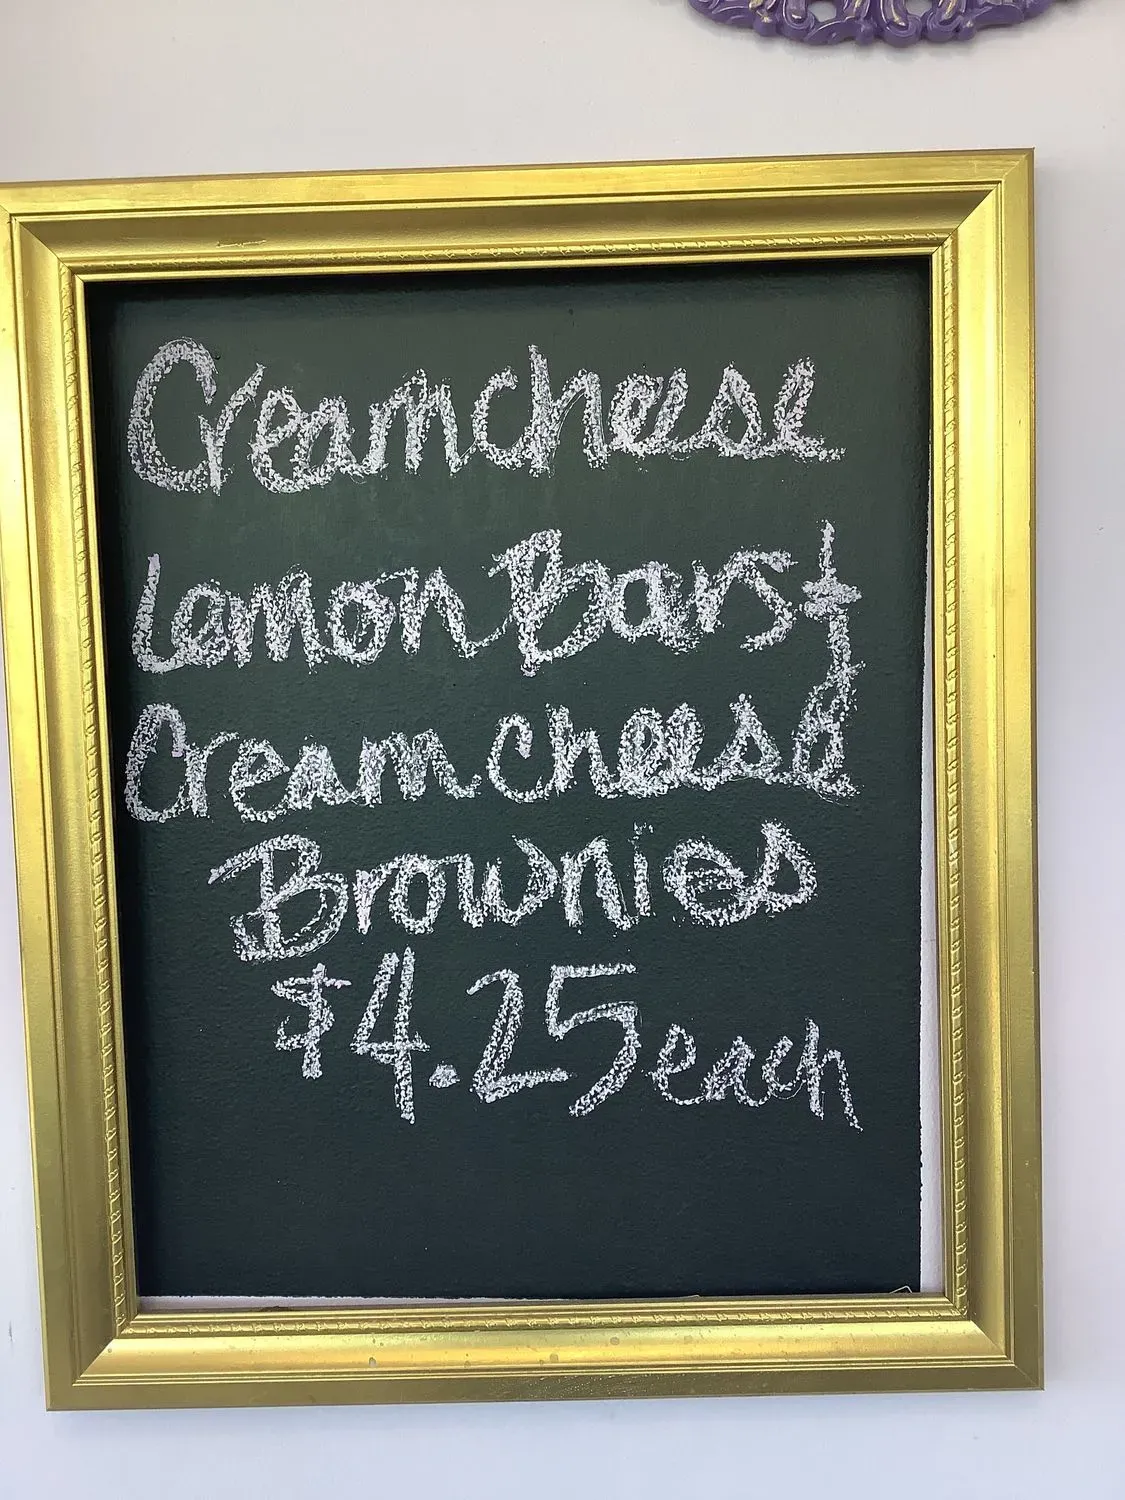 Creamcheese
Lemon Bars &
Cream cheese
Brownies
$4.25 each